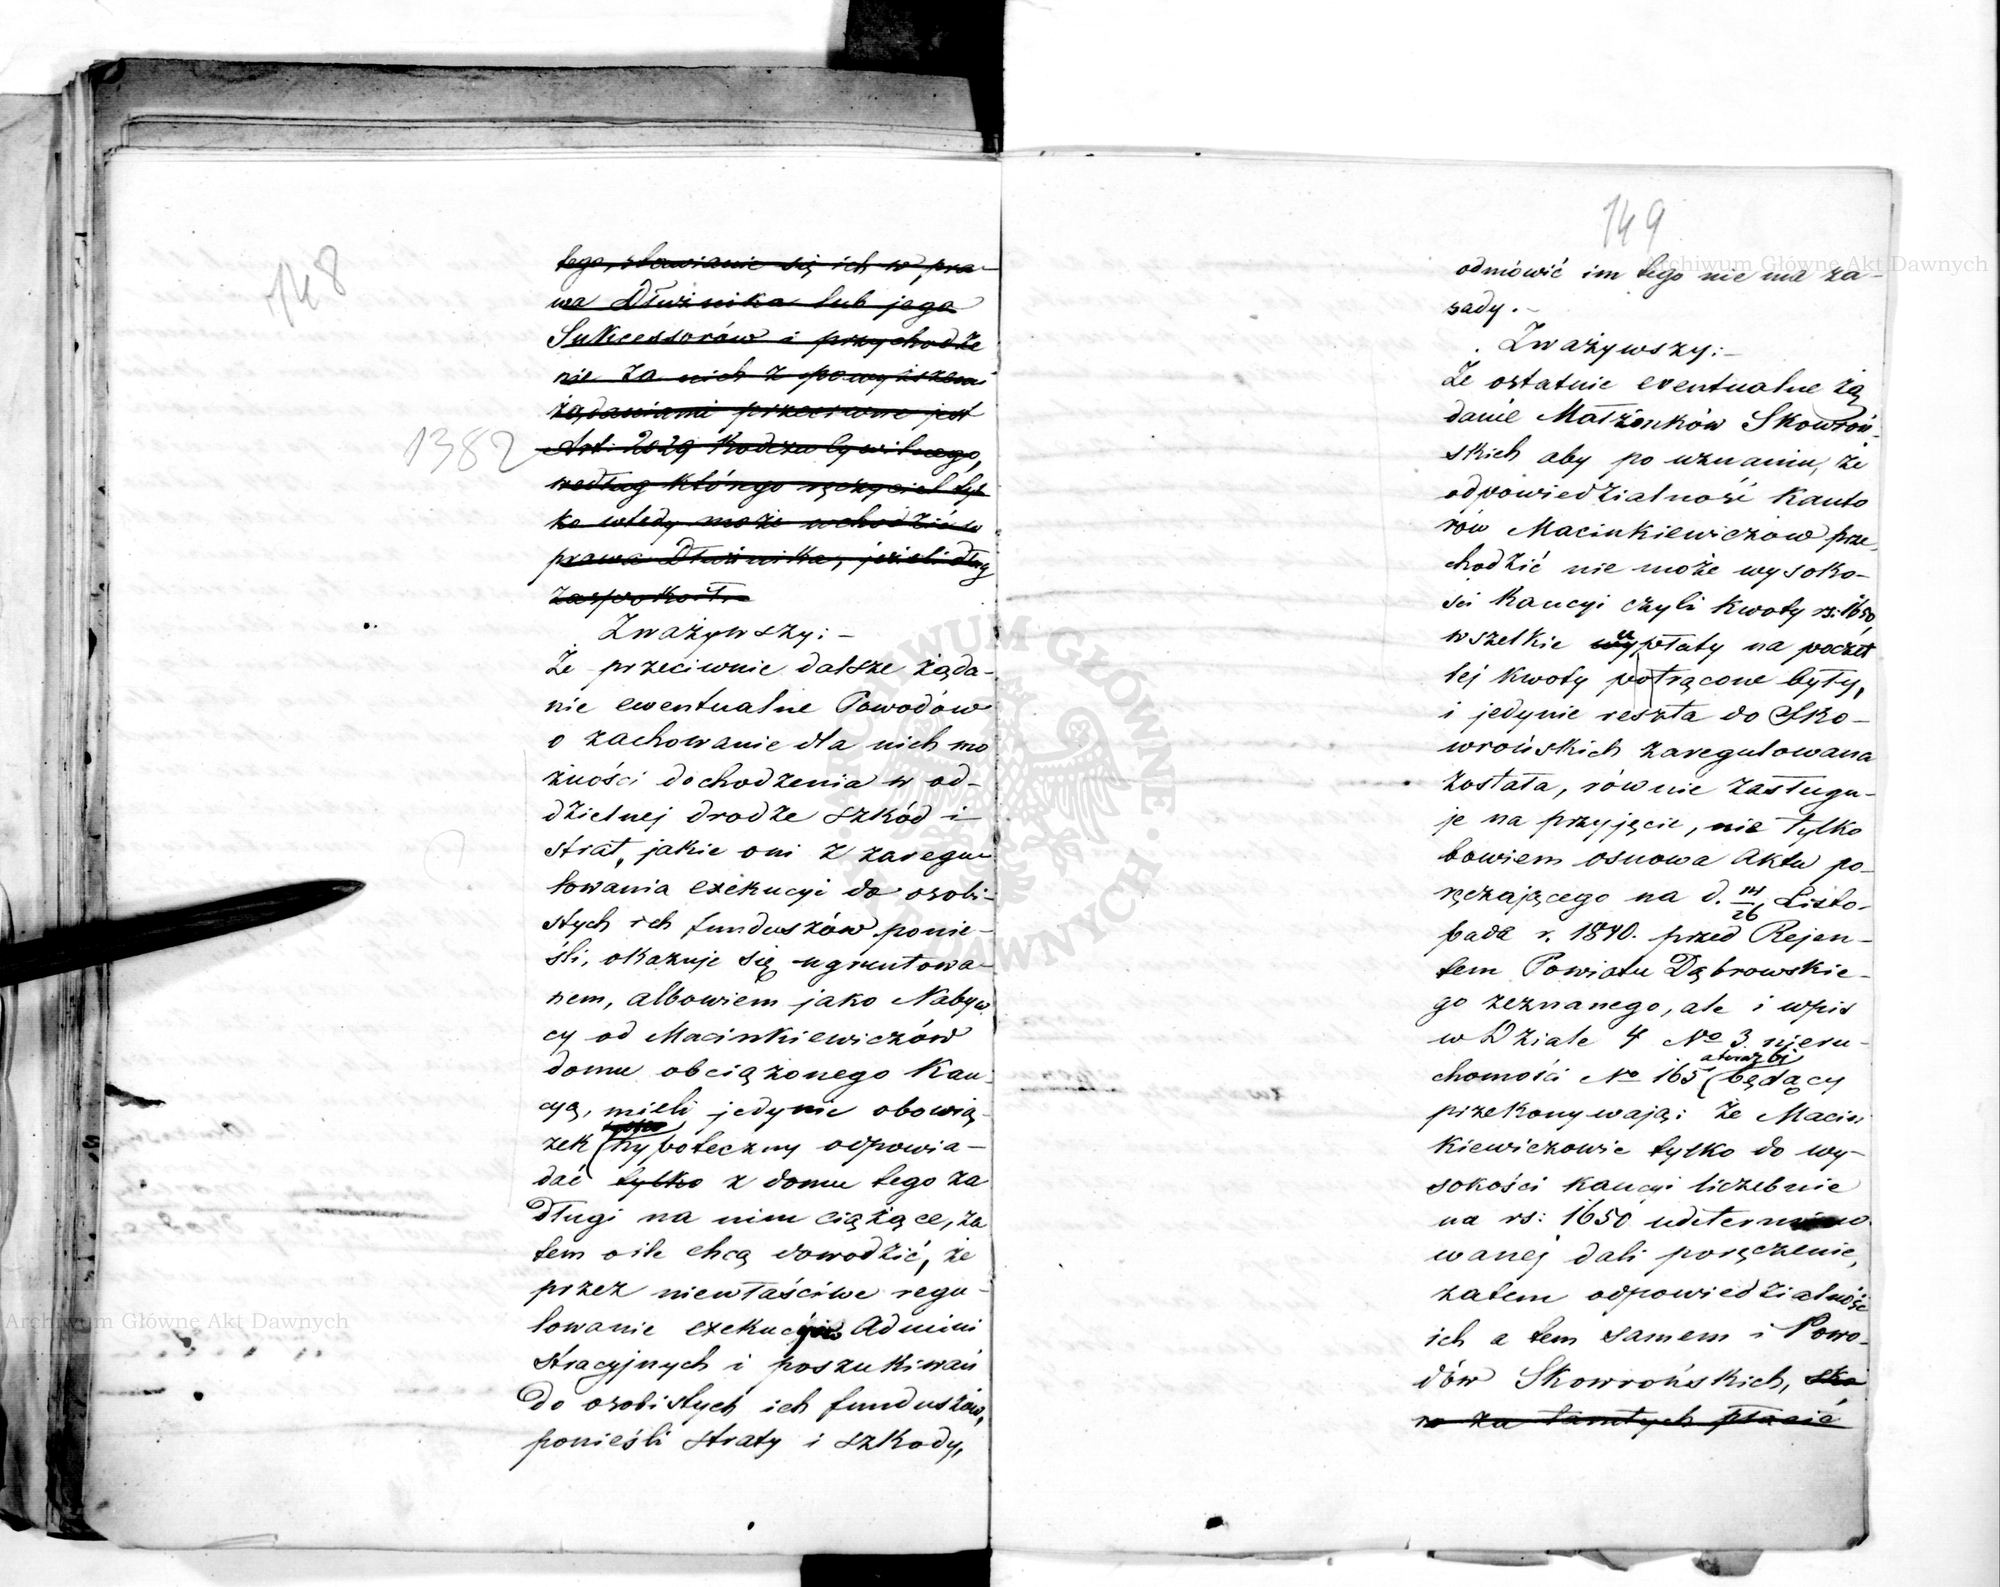 148
tego, stawianie się ich w pra-
wa Dłużnika lub jego
Sukcessorów i przychodze
nie za nich z powyższemi
żądaniami przeciwne jest
Art: 2029 Kodexu Cywilnego,
według którego ręczyciel tyl
ko wtedy może wchodzić w
prawa Dłużnika, jeżeli dług
zaspokoił.
1382
Zważywszy: -
Że przeciwnie dalsze żąda-
nie ewentualne Powodów
o zachowanie dla nich mo
żności dochodzenia w od-
dzielnej drodze szkód i
strat, jakie oni z zaregu-
lowania exekucyi do osobi-
stych ich funduszów ponie-
śli, okazuje się ugruntowa-
nem, albowiem jako Nabyw
cy od Macinkiewiczów
domu obciążonego Kau-
cyą, mieli jedynie obowią-
zek hypoteczny odpowia-
dać tylko z domu tego za
Długi na nim ciążące, za
tem oile chcą dowodzić, że
przez niewłaściwe regu-
lowanie exekucyi Admini
stracyjnych i poszukiwań
Do osobistych ich funduszów,
ponieśli straty i szkody,
149
odmówić im tego nie ma za-
sady. -
Zważywszy: -
Że ostatnie ewentualne żą
danie Małżonków Skowroń-
skich aby po uznaniu, że
odpowiedzialność Kauto
rów Macinkiewiczów prze-
chodzić nie może wysoko-
ści Kaucyi czyli kwoty rs: 1650,
wszelkie wypłaty na poczet
tej kwoty potrącone były,
i jedynie reszta do Sko-
wrońskich zaregulowana
została, równie zasługu-
je na przyjęcie, nie tylko
bowiem osnowa Aktu po-
ręczającego na d. 14/26 Listo-
pada r. 1840. przed Rejen-
tem Powiatu Dąbrowskie-
go zeznanego, ale i wpis
w Dziale 4 No 3. nieru-
chomości No 165 będący
przekonywają: że Macin
kiewiczowie tylko do wy-
sokości kaucyi liczebnie
na rs: 1650 udetermino
wanej dali poręczenie,
zatem odpowiedzialność
ich a tem samem i Powo-
dów Skowrońskich, sko
ro za tamtych płacić
Archiwum Główne Akt Dawnych
Archiwum Główne Akt Dawnych
ARCHIWUM GŁÓWNE AKT DAWNYCH